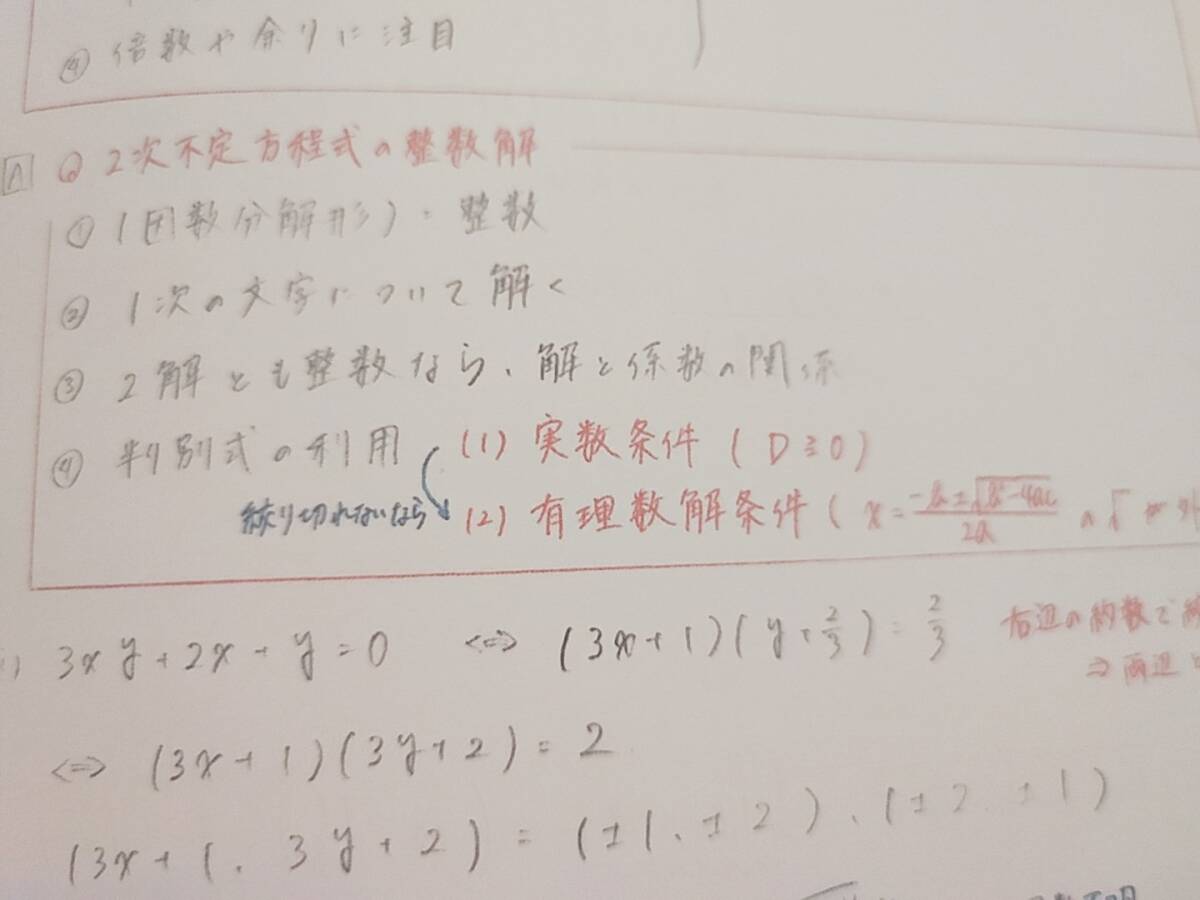 ④ 倍数や余りに注目
A ◎ 2次不定方程式の整数解
① (因数分解形)=整数
② 1次の文字について解く
③ 2解とも整数なら、解と係数の関係
④ 判別式の利用 (1) 実数条件 (D≧0)
絞り切れないなら (2) 有理数解条件 ( x = \frac{-b±\sqrt{b²-4ac}}{2a} の√が外
3xy+2x+y=0 ⇔ (3x+1)(y+\frac{2}{3})=\frac{2}{3} 右辺の約数で
⇒ 両辺
⇔ (3x+1)(3y+2)=2
(3x+1, 3y+2) = (±1, ±2), (±2, ±1)